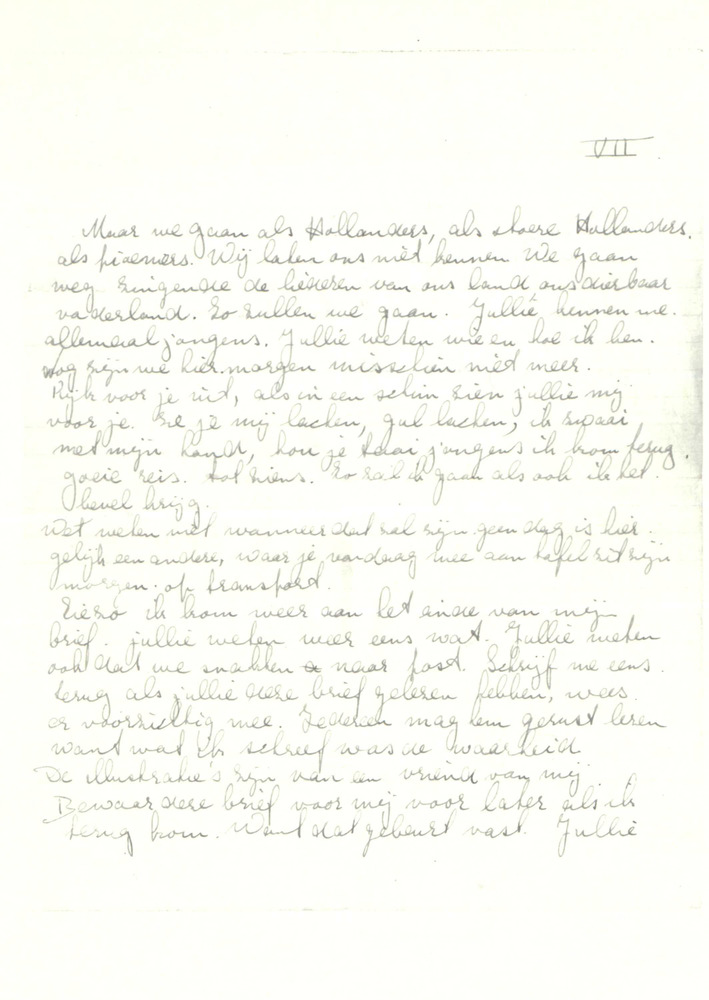 VII
Maar we gaan als Hollanders, als stoere Hollanders.
als pioeniers. Wij laten ons niet kennen We gaan
weg zingende de liederen van ons land ons dierbaar
vaderland. Zo zullen we gaan. Jullie kennen me.
allemaal jongens. Jullie weten wie en hoe ik ben.
Nog zijn we hier. morgen misschien niet meer.
Kijk voor je uit, als in een schim zien jullie mij
voor je. Zie je mij lachen, gul lachen, ik zwaai
met mijn hand, hou je taai jongens ik kom terug.
goeie reis. tot ziens. Zo zal ik gaan als ook ik het
bevel krijg.
We weten niet wanneer dat zal zijn. geen dag is hier
gelijk een andere, waar je vandaag mee aan tafel zit zijn
morgen. op transport.
Ziezo ik kom weer aan het einde van mijn
brief. jullie weten weer eens wat. Jullie weten
ook dat we snakken naar post. Schrijf me eens
terug als jullie deze brief gelezen hebben, wees.
er voorzichtig mee. Iedereen mag hem gerust lezen
want wat ik schreef was de waarheid
De illustratie's zijn van een vriend van mij
Bewaar deze brief voor mij voor later als ik
terug kom. Want dat gebeurt vast. Jullie